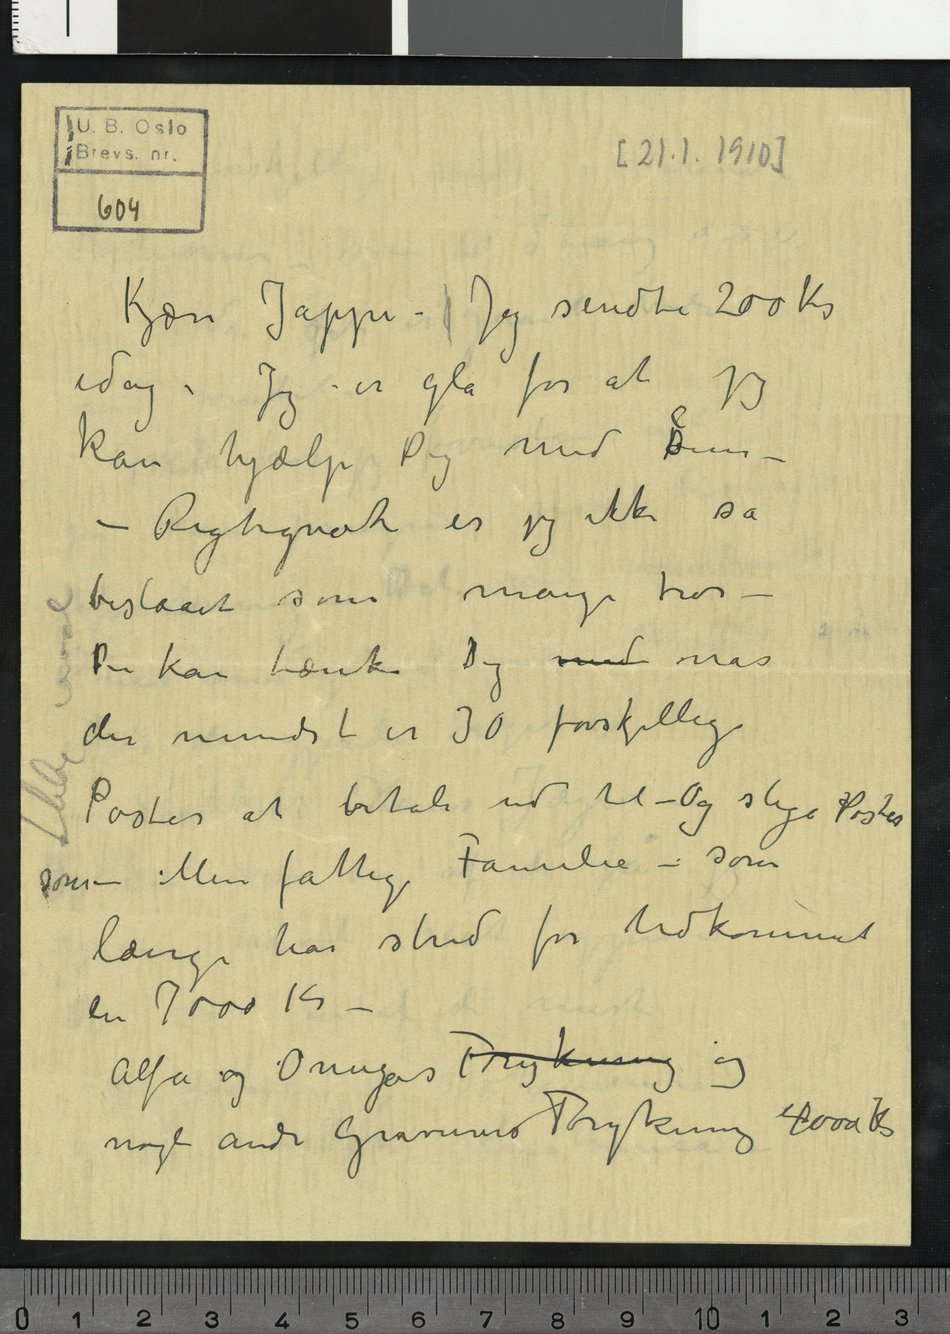 U. B. Oslo
Brevs. nr.
604
[21.1. 1910]
Kjære Jappe - Jeg sendte 200 Kr
idag. Jeg er gla for at jeg
kan hjælpe Dig med
– Rigtignok er jeg ikke så
beslaaet som mange tror –
Du kan tænke Dig med nar
der mindst er 30 forskjellige
Poster at betale ud til – Og slige Poster
som – Min fattige Familie – som
længe har strid for Udkommet
en 7000 Kr –
Alfa og Omegas Trykning og
nogle andre Gravurers Trykning 4000 Kr